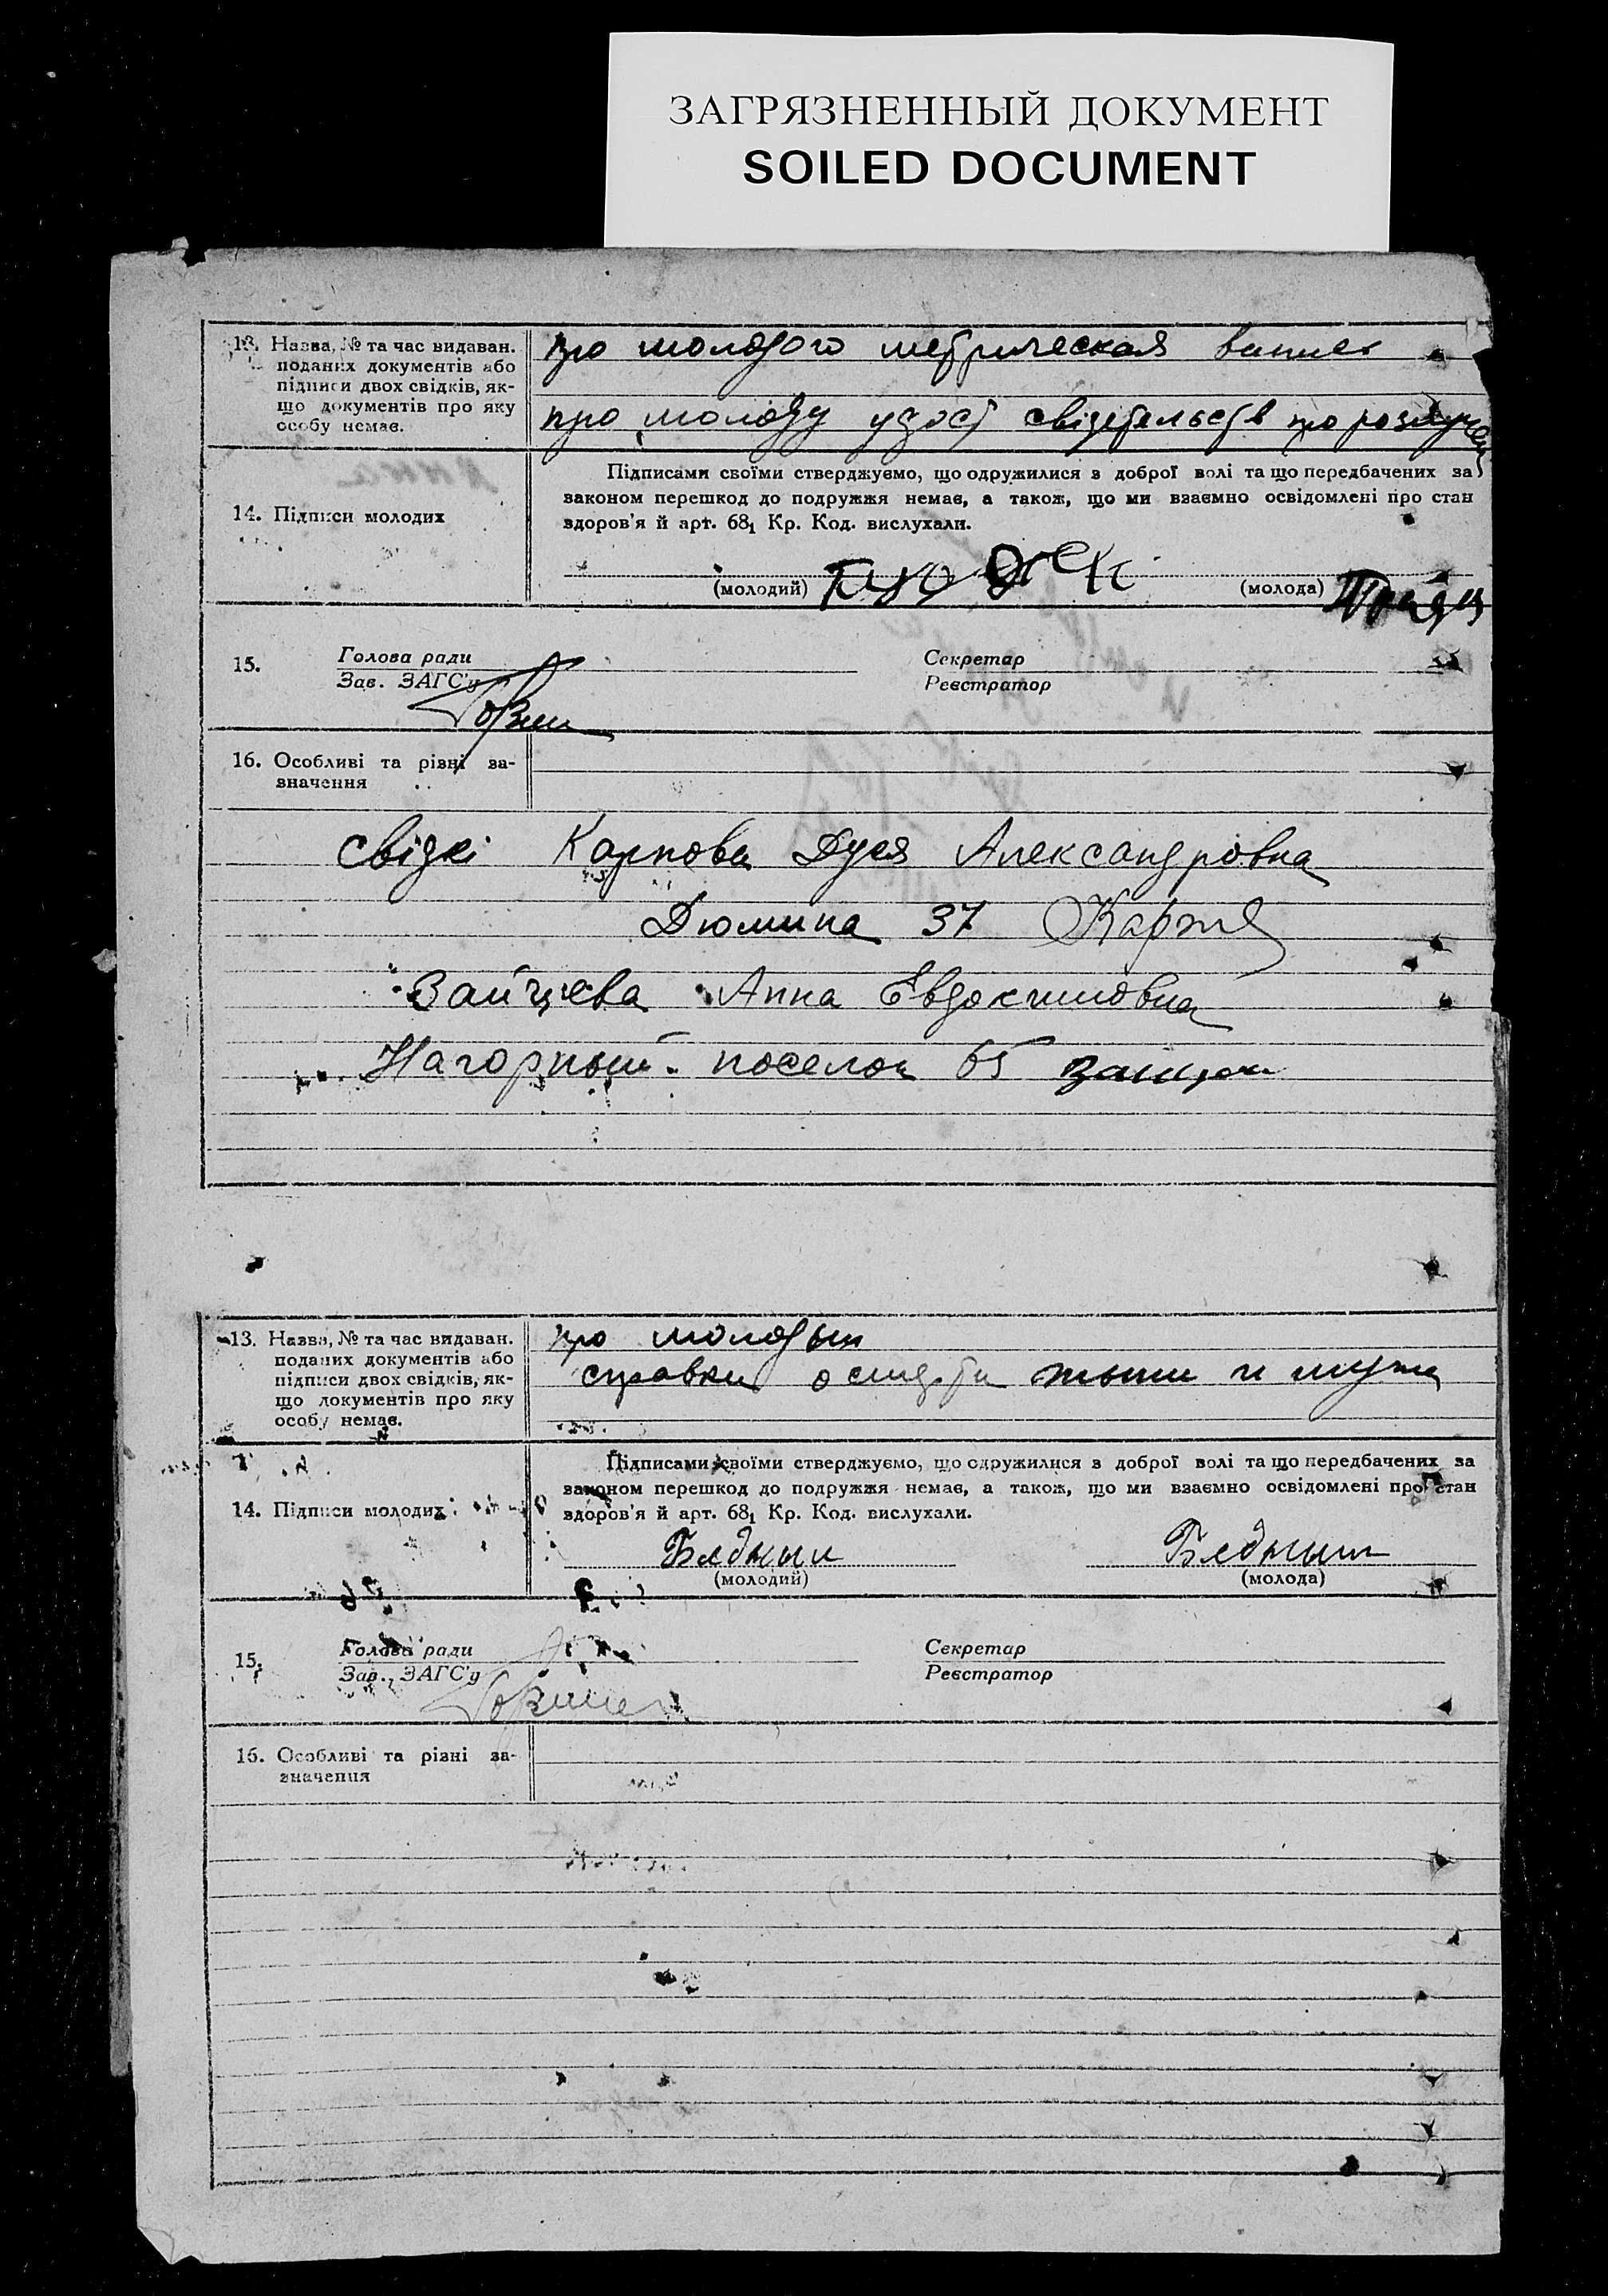 ЗАГРЯЗНЕННЫЙ ДОКУМЕНТ
SOILED DOCUMENT
13. Назва, № та час видаван.
поданих документів або
підписи двох свідків, як-
що документів про яку
особу немає.
про молодого метрическая
про молоду удост
14. Підписи молодих
Підписами своїми стверджуємо, що одружилися з доброї волі та що передбачених за
законом перешкод до подружжя немає, а також, що ми взаємно освідомлені про стан
здоров'я й арт. 68₁ Кр. Код. вислухали.
(молодий)
(молода)
15.
Голова ради
Зав. ЗАГС'у
Секретар
Реєстратор
16. Особливі та різні за-
значення
свідкі Карпова Дуся Александровна
Дюмина 37
Зайцева Анна Евдокимовна
Нагорный поселок 65
13. Назва, № та час видаван.
поданих документів або
підписи двох свідків, як-
що документів про яку
особу немає.
про молодых
справки и мужа
14. Підписи молодих
Підписами своїми стверджуємо, що одружилися з доброї волі та що передбачених за
законом перешкод до подружжя немає, а також, що ми взаємно освідомлені про стан
здоров'я й арт. 68₁ Кр. Код. вислухали.
(молодий)
(молода)
15.
Голова ради
Зав. ЗАГС'у
Секретар
Реєстратор
16. Особливі та різні за-
значення